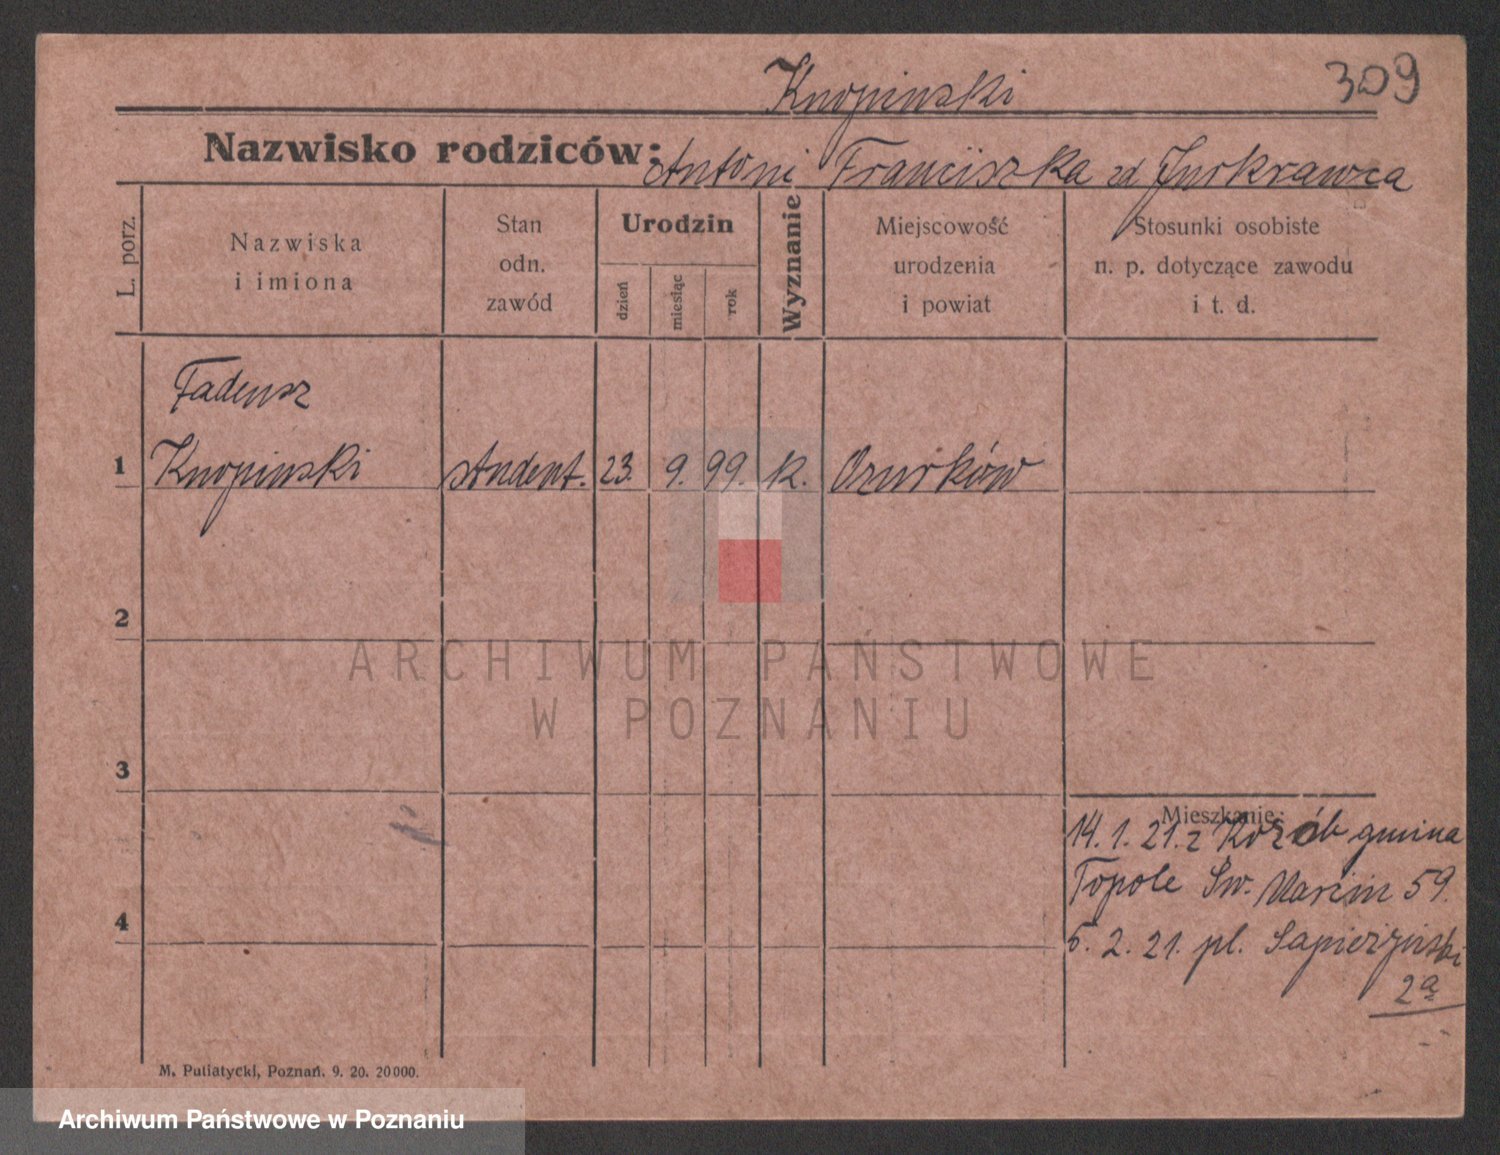 Knopinski 309
Nazwisko rodziców: Antoni Franciszka zd Jurkrawca
L. porz.
Nazwiska
i imiona
Stan
odn.
zawód
Urodzin
dzień
miesiąc
rok
Wyznanie
Miejscowość
urodzenia
i powiat
Stosunki osobiste
n. p. dotyczące zawodu
i t. d.
Tadeusz
1 Knopinski student. 23. 9. 99. k. Ozurków
2
3
4
Mieszkanie:
14. 1. 21. z Rozób gmina
Topole Św. Marcin 59.
5. 2. 21. pl. Sapierzyński
2a
M. Putiatycki, Poznań. 9. 20. 20000.
ARCHIWUM PAŃSTWOWE
W POZNANIU
Archiwum Państwowe w Poznaniu